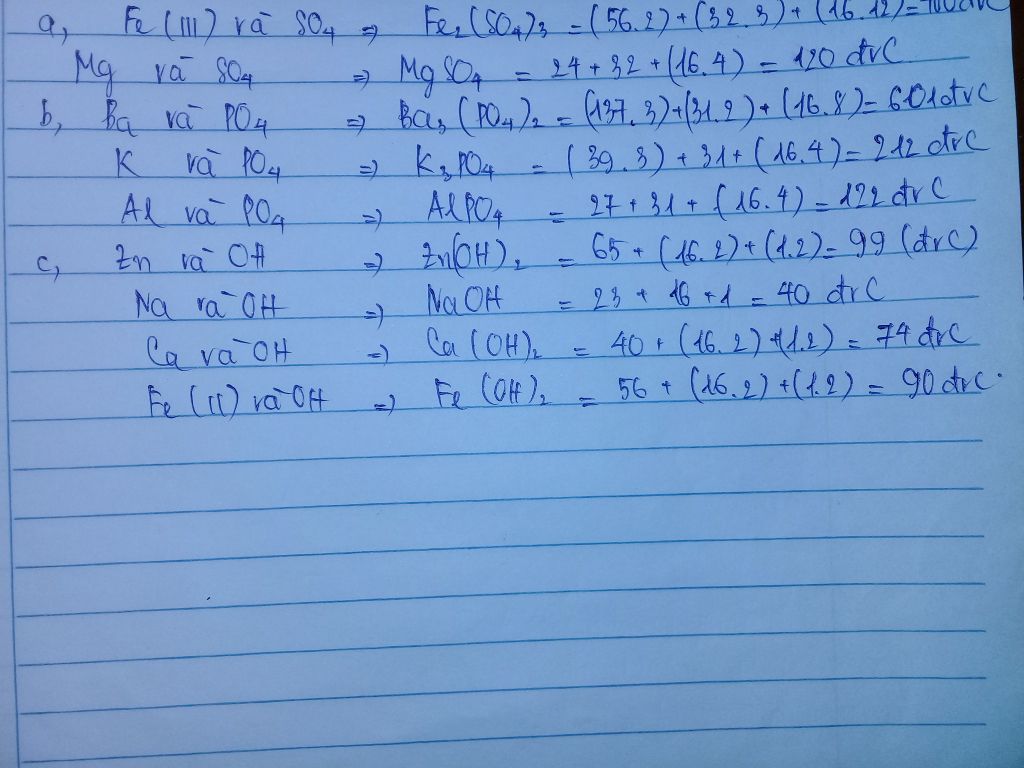 a, Fe (III) và SO₄ => Fe₂(SO₄)₃ = (56.2)+(32.3)+(16.12)=400đvC
Mg và SO₄ => MgSO₄ = 24+32+(16.4) = 120 đvC
b, Ba và PO₄ => Ba₃(PO₄)₂ = (137.3)+(31.2)+(16.8)=601đvC
K và PO₄ => K₃PO₄ = (39.3)+31+(16.4)=212 đvC
Al và PO₄ => AlPO₄ = 27+31+(16.4)=122 đvC
c, Zn và OH => Zn(OH)₂ = 65+(16.2)+(1.2)=99 (đvC)
Na và OH => NaOH = 23 + 16 +1 = 40 đvC
Ca và OH => Ca(OH)₂ = 40+(16.2)+(1.2) = 74 đvC
Fe (II) và OH => Fe(OH)₂ = 56 + (16.2)+(1.2) = 90 đvC.